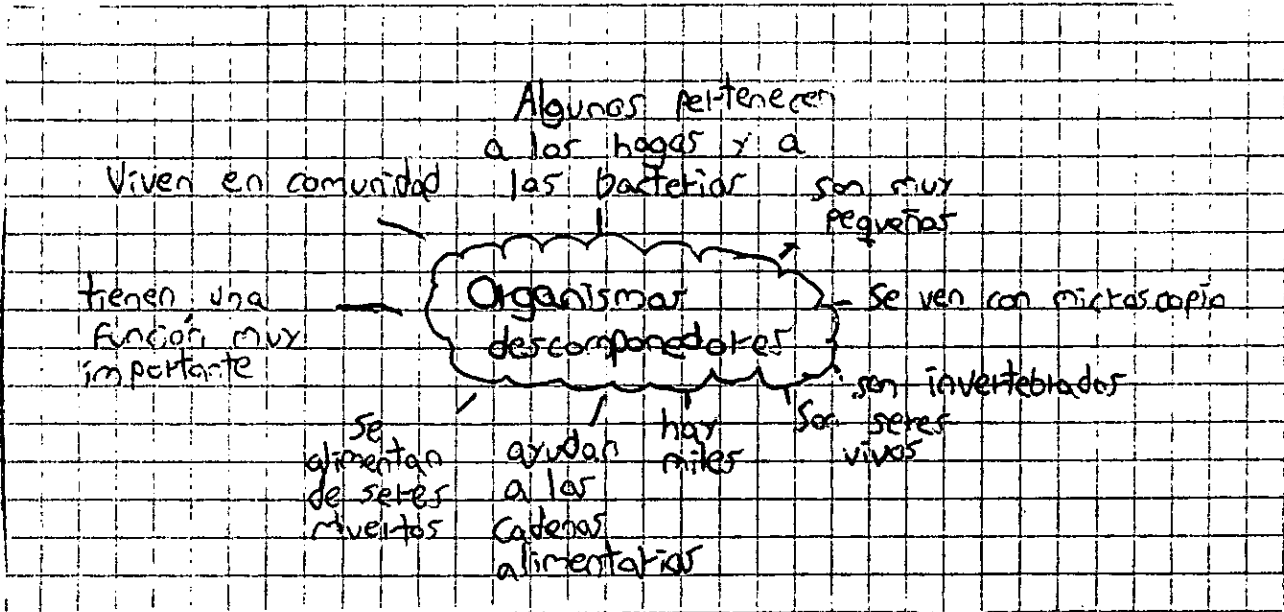 Algunos pertenecen
a los hogos y a
las bacterias
Viven en comunidad
son muy
pequeños
tienen una
función muy
importante
Organismos
descomponedores
se ven con microscopio
son invertebrados
Son seres
vivos
hay
miles
ayudan
a las
cadenas
alimentarias
Se
alimentan
de seres
muertos